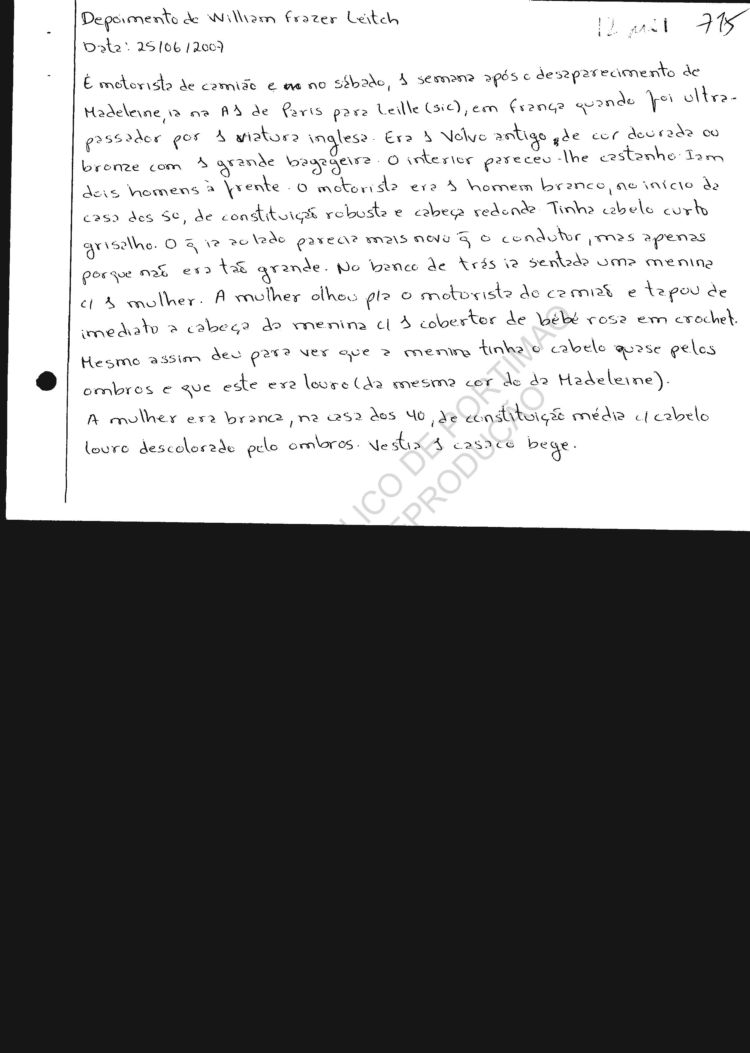 Depoimento de William Frazer Leitch
12 mil 715
Data: 25/06/2007
É motorista de camião e no sábado, 1 semana após o desaparecimento de
Madeleine, ia na A1 de Paris para Leille (sic), em França quando foi ultra-
passador por 1 viatura inglesa. Era 1 Volvo antigo, de cor dourada ou
bronze com 1 grande bagageira. O interior pareceu-lhe castanho. Iam
dois homens à frente. O motorista era 1 homem branco, no início da
casa dos 50, de constituição robusta e cabeça redonda. Tinha cabelo curto
grisalho. O q̃ ia ao lado parecia mais novo q̃ o condutor, mas apenas
porque não era tão grande. No banco de trás ia sentada uma menina
c/ 1 mulher. A mulher olhou p/a o motorista do camião e tapou de
imediato a cabeça da menina c/ 1 cobertor de bébé rosa em crochet.
Mesmo assim deu para ver que a menina tinha o cabelo quase pelos
ombros e que este era louro (da mesma cor do da Madeleine).
A mulher era branca, na casa dos 40, de constituição média c/ cabelo
louro descolorado pelo ombros. Vestia 1 casaco bege.
LICO DE PORTIMÃO
EPRODUÇÃO